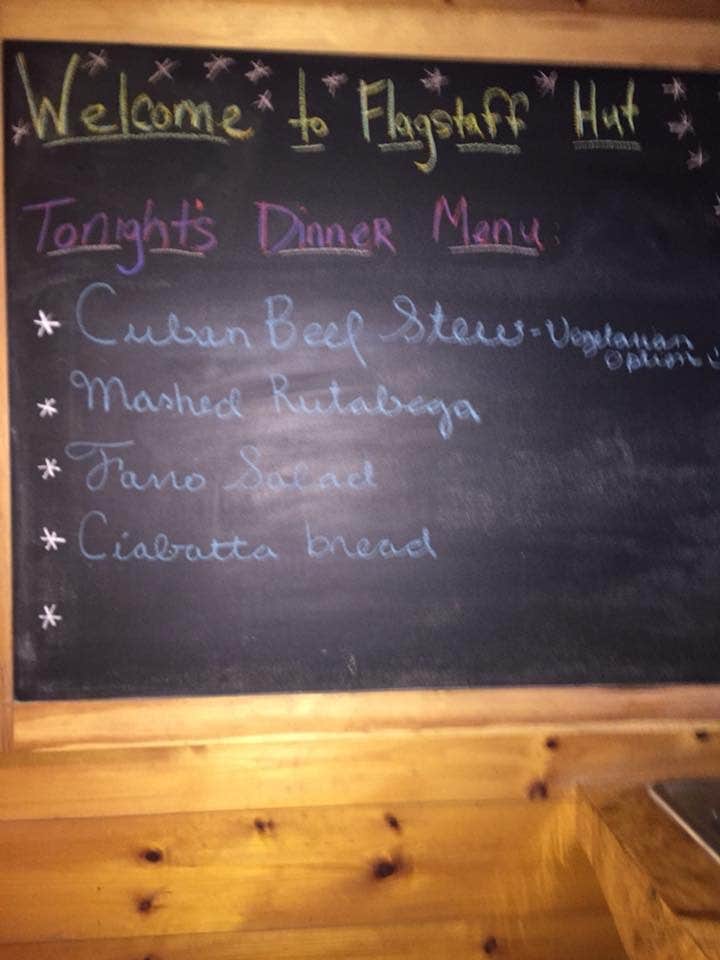 Welcome to Flagstaff Hut
Tonight's Dinner Menu:
* Cuban Beef Stew - Vegetarian
option
* Mashed Rutabega
* Farro Salad
* Ciabatta bread
*